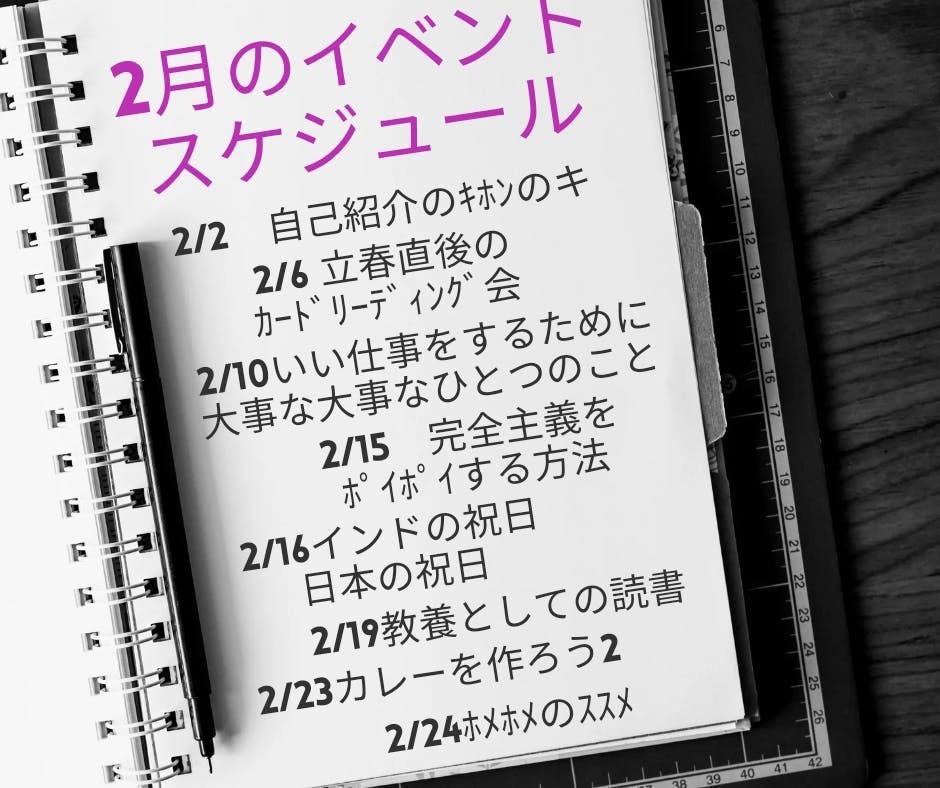 2月のイベント
スケジュール
2/2　自己紹介のｷﾎﾝのキ
2/6 立春直後の
ｶｰﾄﾞﾘｰﾃﾞｨﾝｸﾞ会
2/10いい仕事をするために
大事な大事なひとつのこと
2/15　完全主義を
ﾎﾟｲﾎﾟｲする方法
2/16インドの祝日
日本の祝日
2/19教養としての読書
2/23カレーを作ろう2
2/24ﾎﾒﾎﾒのｽｽﾒ
6
7
8
9
10
11
12
13
14
15
16
17
18
19
20
21
22
23
24
25
26
37
38
39
40
41
42